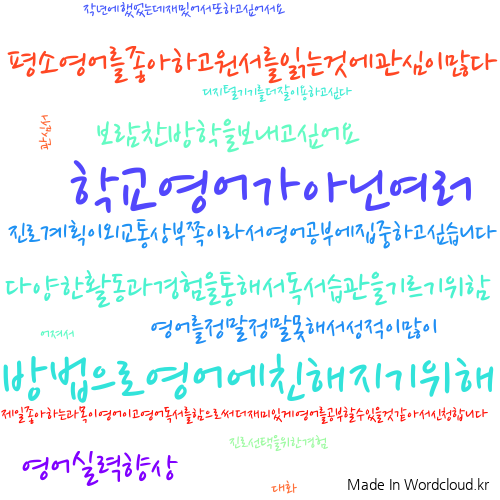 작년에했었는데재밌어서또하고싶어서요
평소영어를좋아하고원서를읽는것에관심이많다
디지털기기를더잘이용하고싶다
관심서
보람찬방학을보내고싶어요
학교영어가아닌여러
진로계획이외교통상부쪽이라서영어공부에집중하고싶습니다
다양한활동과경험을통해서독서습관을기르기위함
영어를정말정말못해서성적이많이
어져서
방법으로영어에친해지기위해
제일좋아하는과목이영어이고영어독서를함으로써더재미있게영어를공부할수있을것같아서신청합니다
진로선택을위한경험
영어실력향상
대화
Made In Wordcloud.kr